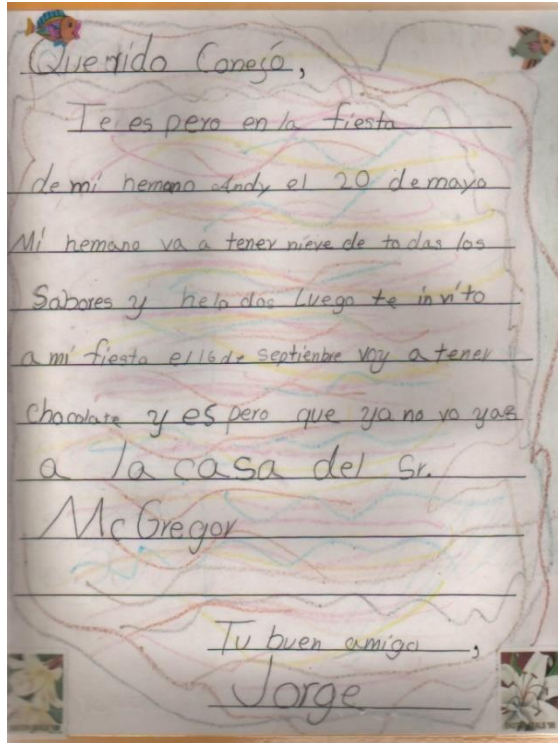 Querido Conejo,
Te es pero en la fiesta
de mi hemano Andy el 20 de mayo
Mi hemano va a tener nieve de to das los
Sabores y hela dos Luego te in vito
a mi fiesta el 16 de Septienbre voy a tener
chocolate y es pero que ya no va yas
a la casa del Sr.
McGregor
Tu buen amigo,
Jorge